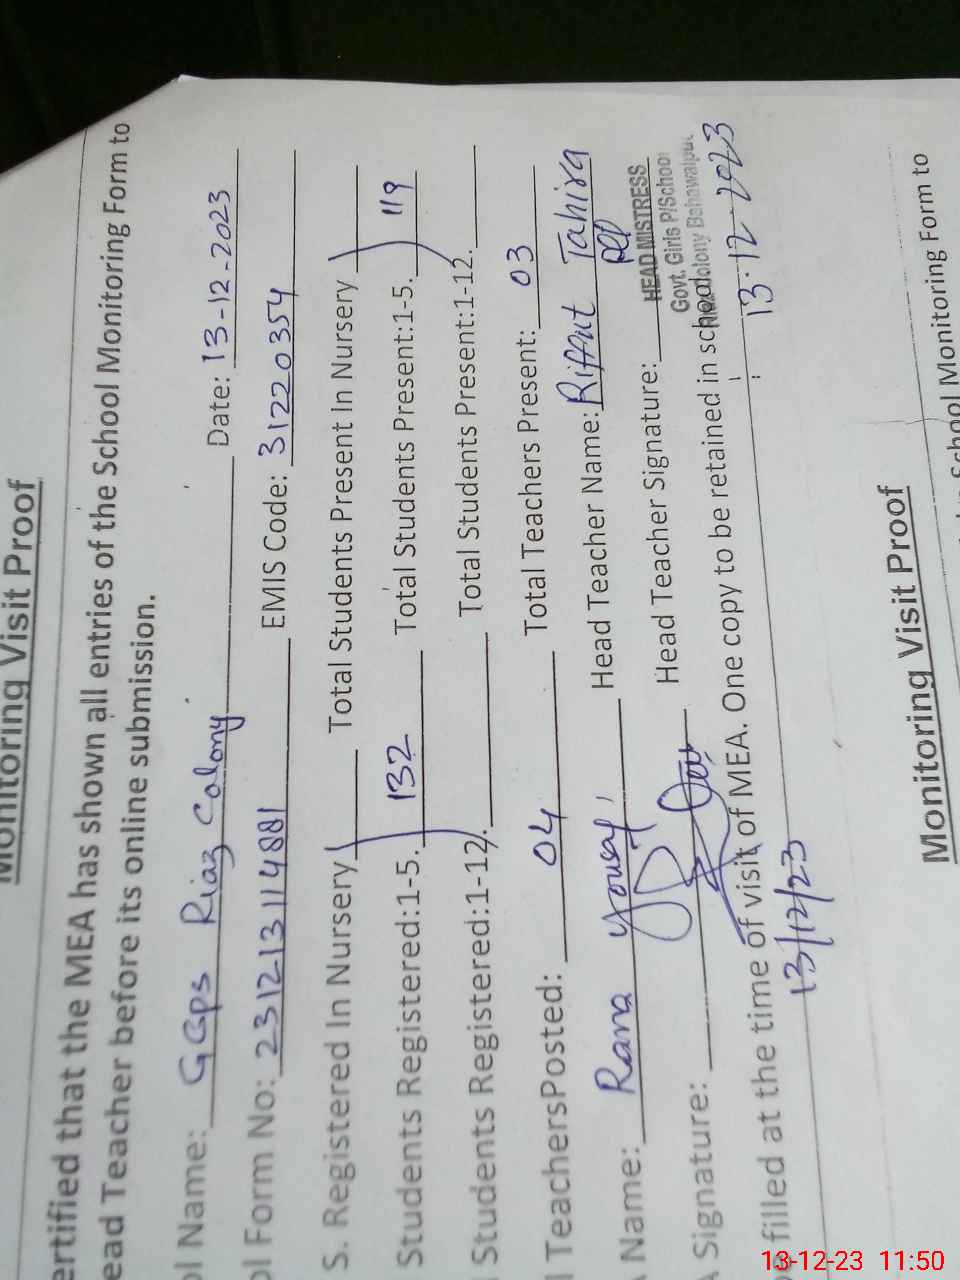 Monitoring Visit Proof
ertified that the MEA has shown all entries of the School Monitoring Form to
ead Teacher before its online submission.
ol Name: GGPS Riaz Colony Date: 13-12-2023
ol Form No: 2312131114881 EMIS Code: 31220354
S. Registered In Nursery Total Students Present In Nursery
Students Registered:1-5. 132 Total Students Present:1-5. 119
Students Registered:1-12. Total Students Present:1-12.
l TeachersPosted: 04 Total Teachers Present: 03
Name: Rana Yousaf Head Teacher Name: Riffut Tahira
Signature: Head Teacher Signature:
HEAD MISTRESS
Govt. Girls P/School
Colony Bahawalpur
filled at the time of visit of MEA. One copy to be retained in school
13/12/23 13.12.2023
Monitoring Visit Proof
School Monitoring Form to
13-12-23 11:50